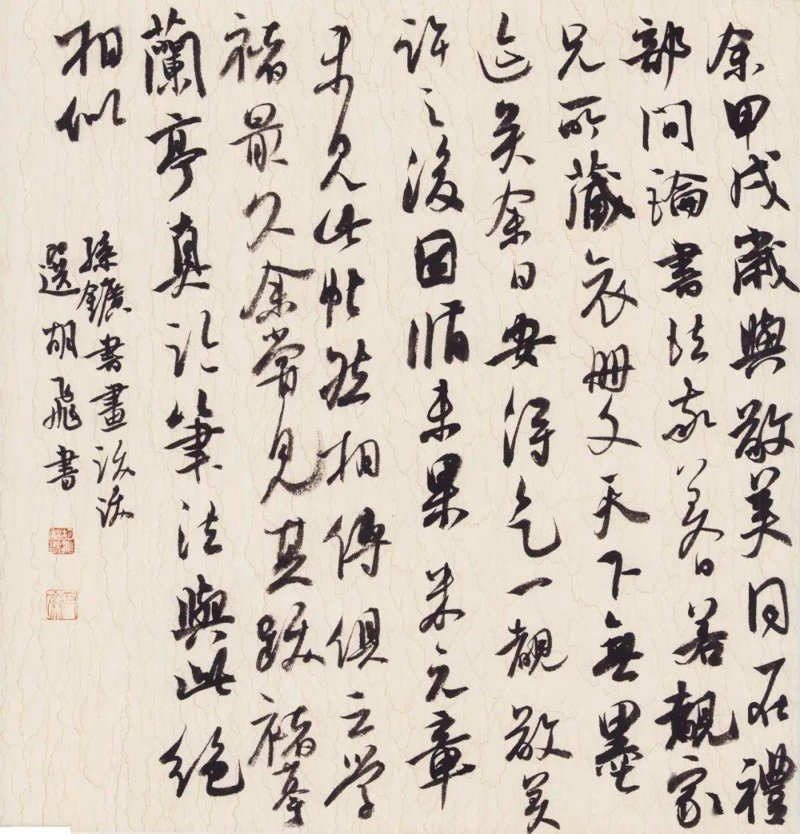 余甲戌歲與敬美同在禮
部間論書法敬美曰若覩家
兄所藏哀冊文天下無墨
迹矣余曰安得乞一觀敬美
許之後因循未果米元章
未見此帖然相傳俱云學
褚最久余嘗見其跋褚摹
蘭亭真跡筆法與此絕
相似
孫鑛書畫跋跋
選胡飛書